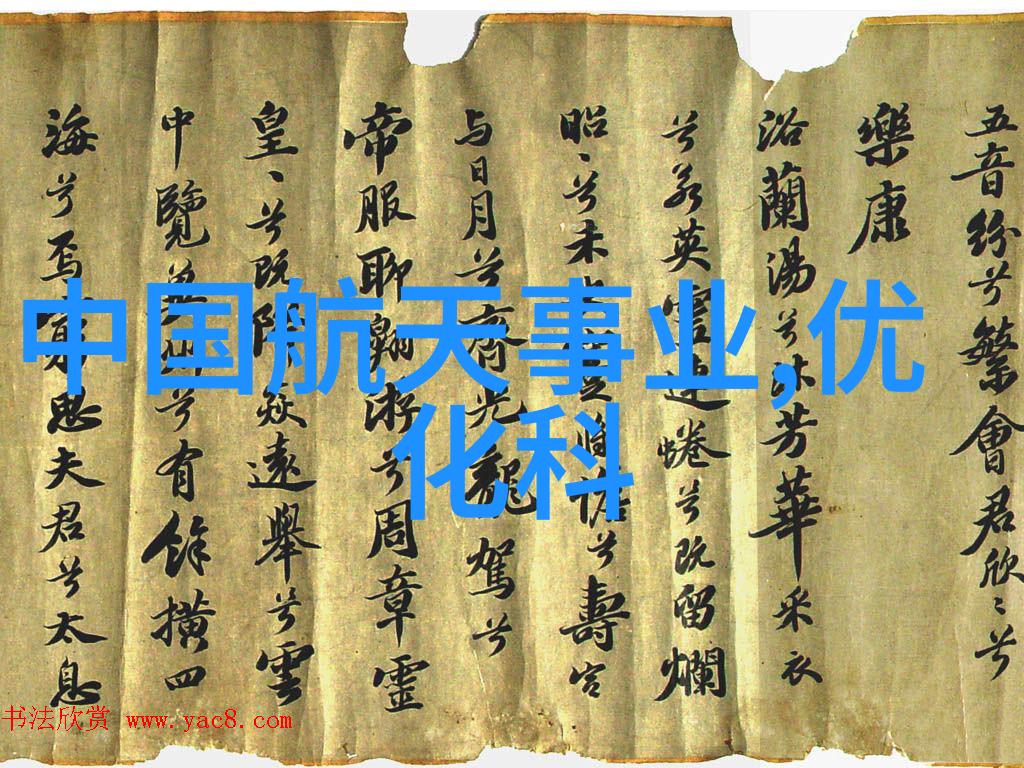 五音紛兮繁會君欣〻兮
樂康
浴蘭湯兮沐芳華采衣
兮若英靈連蜷兮既留爛
昭〻兮未將憺兮壽宮
与日月兮齊光龍駕兮
帝服聊翱游兮周章靈
皇〻兮既降猋遠舉兮雲
中覽州兮有餘橫四
海兮焉窮思夫君兮太息
中国航天事业,优
化科
书法欣赏 www.yac8.com